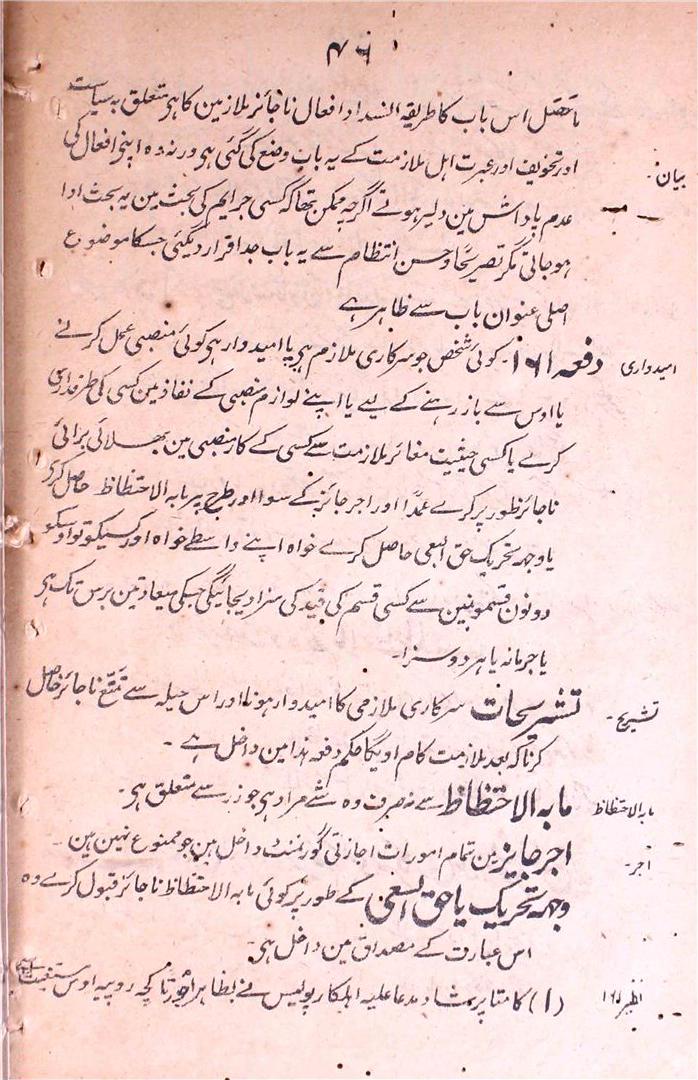 ماحصل اس باب کا طریقہ انسداد افعال ناجائز ملازمین کا ہی متعلق بہ سیاست
بیان۔ اور تخویف اور عبرت اہل ملازمت کے یہ باب وضع کی گئی ہی ورنہ وہ اپنی افعال کی
عدم پاداش مین دلیر ہوتے اگرچہ ممکن تھا کہ کسی جرایم کی بحث مین یہ بحث ادا
ہوجاتی مگر تصریحًا و حسن انتظام سے یہ باب جدا قرار دیگئی جسکا موضوع
اصلی عنوان باب سے ظاہر ہے
امیدواری دفعہ ۱۶۱۔ کوئی شخص جو سرکاری ملازم ہی یا امیدوار ہی کوئی منصبی عمل کرنے
یا اوس سے باز رہنے کے لیے یا اپنے لوازم منصبی کے نفاذ مین کسی کی طرفداری
کرے یا کسی حیثیت مغائر ملازمت سے کسی کے کار منصبی مین بھلائی برائی
ناجائز طور پر کرے عمدًا اور اجر جائز کے سوا اور طرح پر مابہ الاحتظاظ حاصل کری
یا وجہ تحریک حق السعی حاصل کرے خواہ اپنے واسطے خواہ اور کسیکو تو اوسکو
دونون قسمونمین سے کسی قسم کی قید کی سزا دیجائیگی جسکی میعاد تین برس تک ہی
یا جرمانہ یا ہر دو سزا۔
تشریح۔ تشریحات سرکاری ملازمی کا امیدوار ہونا اور اس حیلہ سے تمتع ناجائز حاصل
کرنا کہ بعد ملازمت کام اویگا حکم دفعہ ہذا مین داخل ہے ۔
مابہ الاحتظاظ مابہ الاحتظاظ سے نہ صرف وہ شے مراد ہی جو زر سے متعلق ہی۔
اجر۔ اجر جایز مین تمام امورات اجازتی گورنمنٹ داخل ہین جو ممنوع نہین ہین ۔
وجہ تحریک یا حق السعی کے طور پر کوئی مابہ الاحتظاظ ناجائز قبول کرے وہ
اس عبارت کے مصداق مین داخل ہی۔
نظیر (۱) کامتا پرشاد مدعا علیہ اہلکار پولیس نے بظاہر کچہ روپیہ اوس